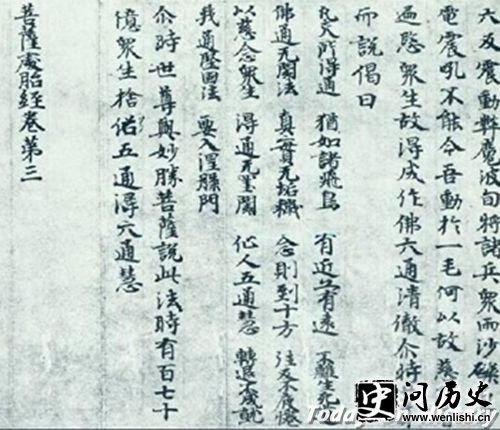 六反震動弊魔波旬將諸兵眾雨沙礫
電震吼不能令吾動於一毛何以故慈
遍愍眾生故得成作佛六通清徹尒時
而説偈曰
凡夫所得通 猶如諸飛鳥 有近亦有遠 不離生死
佛通无閡法 真實无垢穢 念則到十方 往反不疲惓
以慈念眾生 得通无罣閡 仙人五通慧 轉退不成就
我通堅固法 要入涅槃門
尒時世尊與妙勝菩薩說此法時有百七十
憶眾生捨俗五通得六通慧
菩薩處胎經卷第三
问历史
www.wenlishi.cn